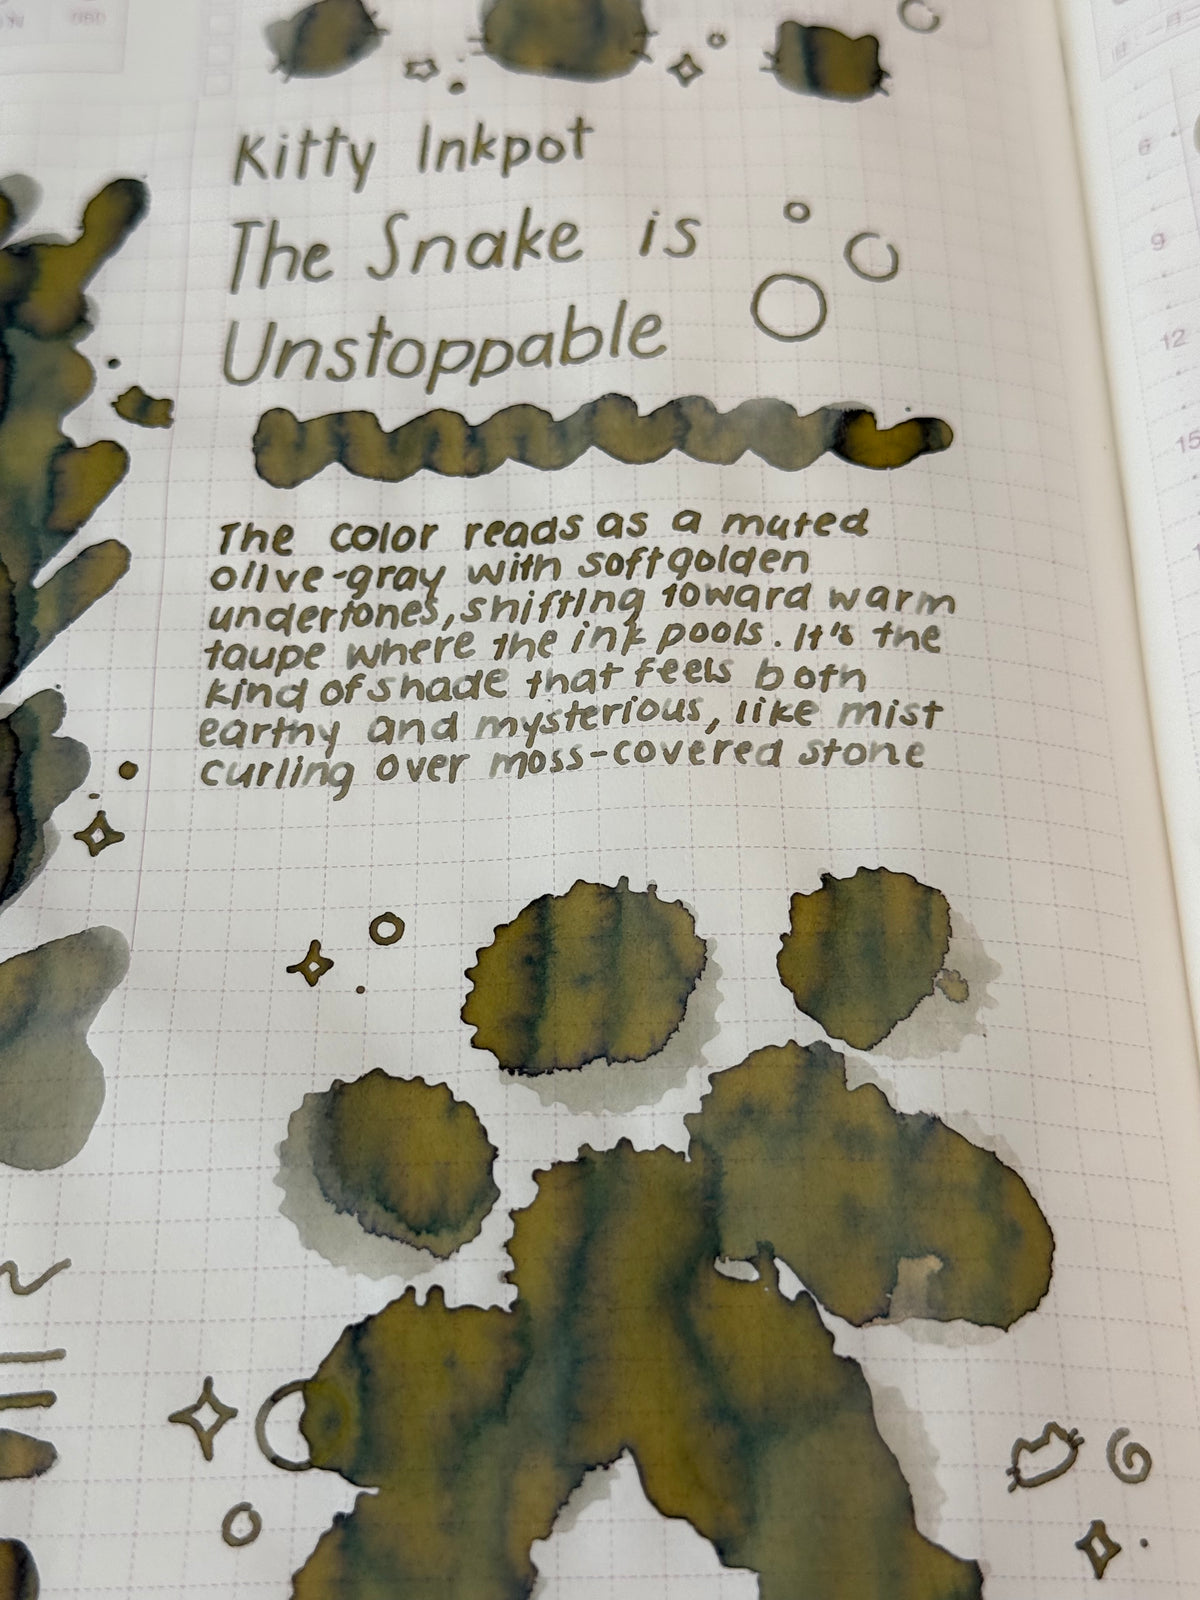 Kitty Inkpot
The Snake is
Unstoppable
The color reads as a muted
olive-gray with soft golden
undertones, shifting toward warm
taupe where the ink pools. It's the
kind of shade that feels both
earthy and mysterious, like mist
curling over moss-covered stone
6
9
12
15